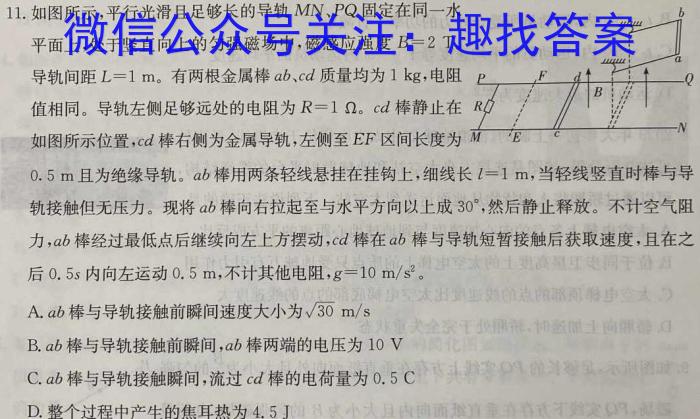 11. 如图所示,平行光滑且足够长的导轨 MN、PQ 固定在同一水
平面上,处于竖直向上的匀强磁场中,磁感应强度 B=2 T,
微信公众号关注:趣找答案
导轨间距 L=1 m。有两根金属棒 ab、cd 质量均为 1 kg,电阻
值相同。导轨左侧足够远处的电阻为 R=1 Ω。cd 棒静止在
如图所示位置,cd 棒右侧为金属导轨,左侧至 EF 区间长度为
0.5 m 且为绝缘导轨。ab 棒用两条轻线悬挂在挂钩上,细线长 l=1 m,当轻线竖直时棒与导
轨接触但无压力。现将 ab 棒向右拉起至与水平方向以上成 30°,然后静止释放。不计空气阻
力,ab 棒经过最低点后继续向左上方摆动,cd 棒在 ab 棒与导轨短暂接触后获取速度,且在之
后 0.5s 内向左运动 0.5 m,不计其他电阻,g=10 m/s²。
A. ab 棒与导轨接触前瞬间速度大小为√30 m/s
B. ab 棒与导轨接触前瞬间,ab 棒两端的电压为 10 V
C. ab 棒与导轨接触瞬间,流过 cd 棒的电荷量为 0.5 C
D. 整个过程中产生的焦耳热为 4.5 J
b
a
P
F
d
Q
R
B
M
E
c
N